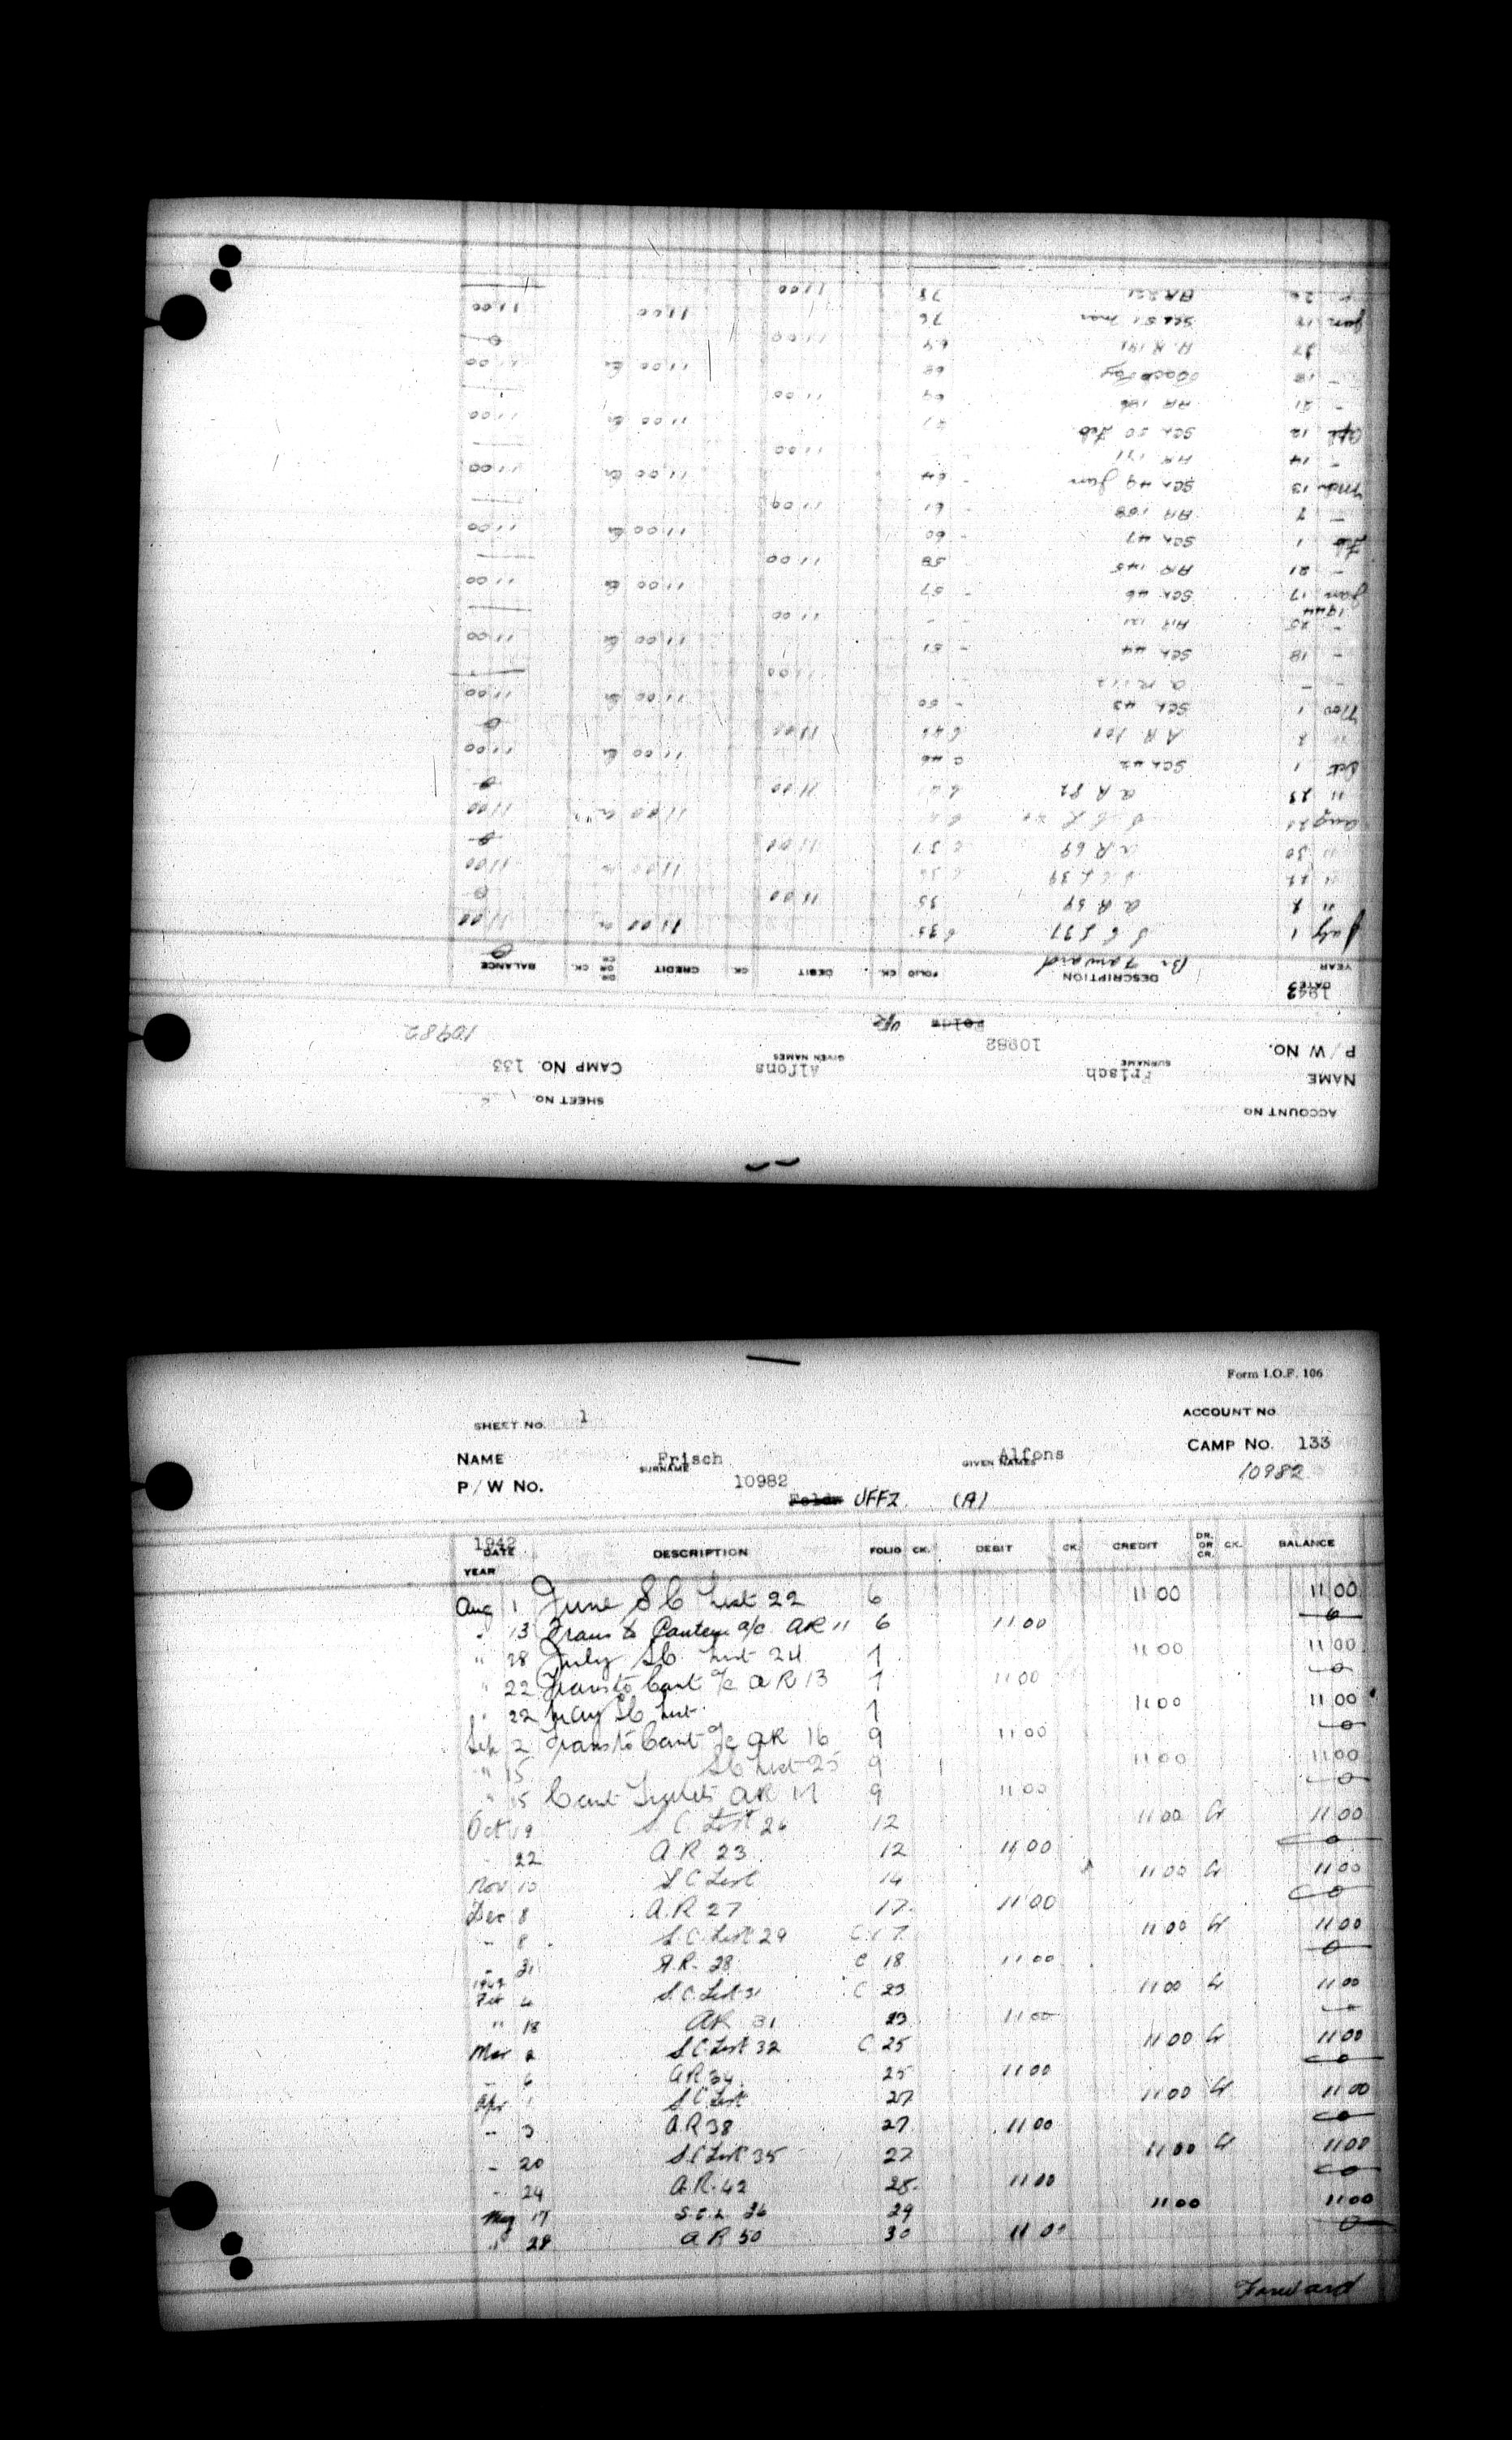 ACCOUNT NO
SHEET NO.
NAME Frisch SURNAME Alfons GIVEN NAMES CAMP NO. 133
P/W NO. 10982 Feldw Uffz 10982
1943
DATE YEAR DESCRIPTION FOLIO CK. DEBIT CK CREDIT DR OR CR CK. BALANCE
Br Forward 0
July 1 S C L 37 C 35 11 00 Cr 11 00
" 2 A R 59 35 11 00 0
" 22 S C L 39 C 36 11 00 Cr 11 00
" 30 A R 69 C 37 11 00 0
Aug 21 S C L 11 00 Cr 11 00
" 23 A R 82 11 00 0
Oct 1 Sch 42 C 46 11 00 Cr 11 00
" 2 A R 101 C 46 11 00 0
Nov 1 Sch 43 - 50 11 00 Cr 11 00
- - A R 112 11 00
- 18 Sch 44 - 51 11 00 Cr 11 00
- 25 AR 121 - - 11 00
1944
Jan 17 Sch 46 - 57 11 00 Cr 11 00
- 21 AR 145 58 11 00
Feb 1 Sch 47 - 60 11 00 Cr 11 00
- 7 AR 158 - 61 11 00
Mar 13 Sch 49 Jan - 64 11 00 Cr 11 00
- 14 AR 171 11 00
Apl 12 Sch 50 Feb 67 11 00 Cr 11 00
- 21 AR 186 69 11 00
- 18 Back Pay 68 11 00 Cr 11 00
27 A.R 191 69 11 00 0
Jun 12 Sch 51 Mar 76 11 00 11 00
26 AR 221 75 11 00
Form I.O.F. 106
SHEET NO. 1 ACCOUNT NO
NAME Frisch SURNAME Alfons GIVEN NAMES CAMP NO. 133
P/W NO. 10982 10982
Feldw UFFZ (A)
1942
DATE YEAR DESCRIPTION FOLIO CK. DEBIT CK. CREDIT DR. OR CR. CK. BALANCE
Aug 1 June S C List 22 6 11 00 11 00
" 13 Trans to Canteen a/c AR 11 6 11 00 0
" 18 July SC List 24 7 11 00 11 00
" 22 Trans to Cant a/c A R 13 7 11 00 0
" 22 May SC List 7 11 00 11 00
Sep 2 Trans to Cant a/c AR 16 9 11 00 0
" 15 SC List 25 9 11 00 11 00
" 15 Cant Tickets AR 17 9 11 00 0
Oct 19 S. C. List 26 12 11 00 Cr 11 00
- 22 A R 23 12 11 00 0
Nov 10 S C List 14 11 00 Cr 11 00
Dec 8 A.R 27 17 11 00 0
- 8 S.C. List 29 C 17 11 00 Cr 11 00
- 31 A.R. 28 C 18 11 00 0
1943
Feb 4 S.C. List 31 C 23 11 00 Cr 11 00
" 18 AR 31 23 11 00 0
Mar 2 S.C List 32 C 25 11 00 Cr 11 00
- 6 A R 34 25 11 00 0
Apr 1 S.C List 27 11 00 Cr 11 00
- 3 A.R 38 27 11 00 0
- 20 S.C List 35 27 11 00 Cr 11 00
- 24 A.R. 42 28 11 00 0
May 17 S.C.L. 36 29 11 00 11 00
" 28 A R 50 30 11 00 0
Forward